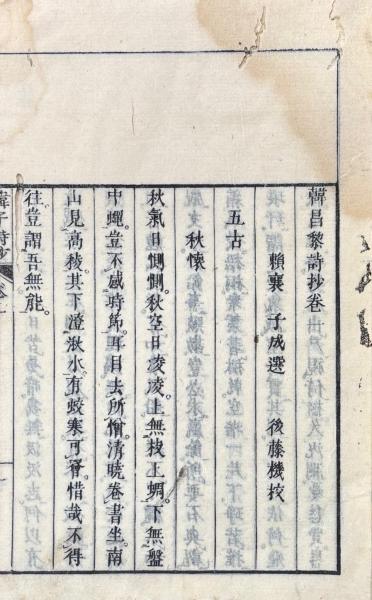 韓昌黎詩抄卷
賴襄 子成選 後藤機校
五古
秋懷
秋氣日惻惻。秋空日凌凌。上無枝上蜩。下無盤
中蠅。豈不感時節。耳目去所憎。清曉卷書坐。南
山見高稜。其下澄湫水。有蛟寒可罾。惜哉不得
往。豈謂吾無能。